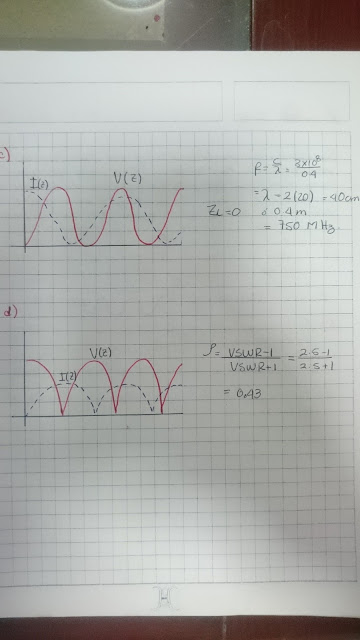 c)
I(z)
V(z)
ZL=0
f= C/λ = 3x10⁸/0.4
= λ = 2(20) = 40cm
ó 0.4 m
= 750 MHz
d)
V(z)
I(z)
ρ= VSWR-1/VSWR+1 = 2.5-1/2.5+1
= 0,43